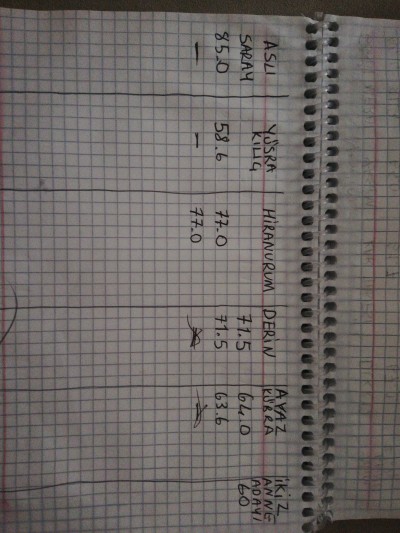 ASLI
SARAY
85.0
—
YÜSRA
KILIÇ
58.6
—
HİRANURUM
77.0
77.0
DERİN
71.5
71.5
AYAZ
KÜBRA
64.0
63.6
İKİZ
ANNE
ADAYI
60